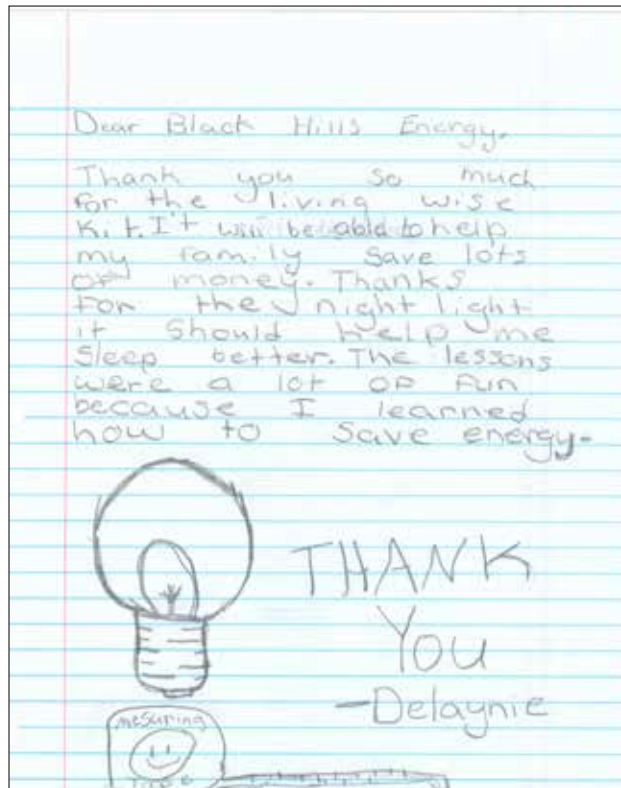 Dear Black Hills Energy.
Thank you so much
for the living wise
Kit. It will be able to help
my family save lots
of money. Thanks
for the night light
it should help me
Sleep better. The lessons
were a lot of fun
because I learned
how to save energy.
THANK
You
-Delaynie
mesuring